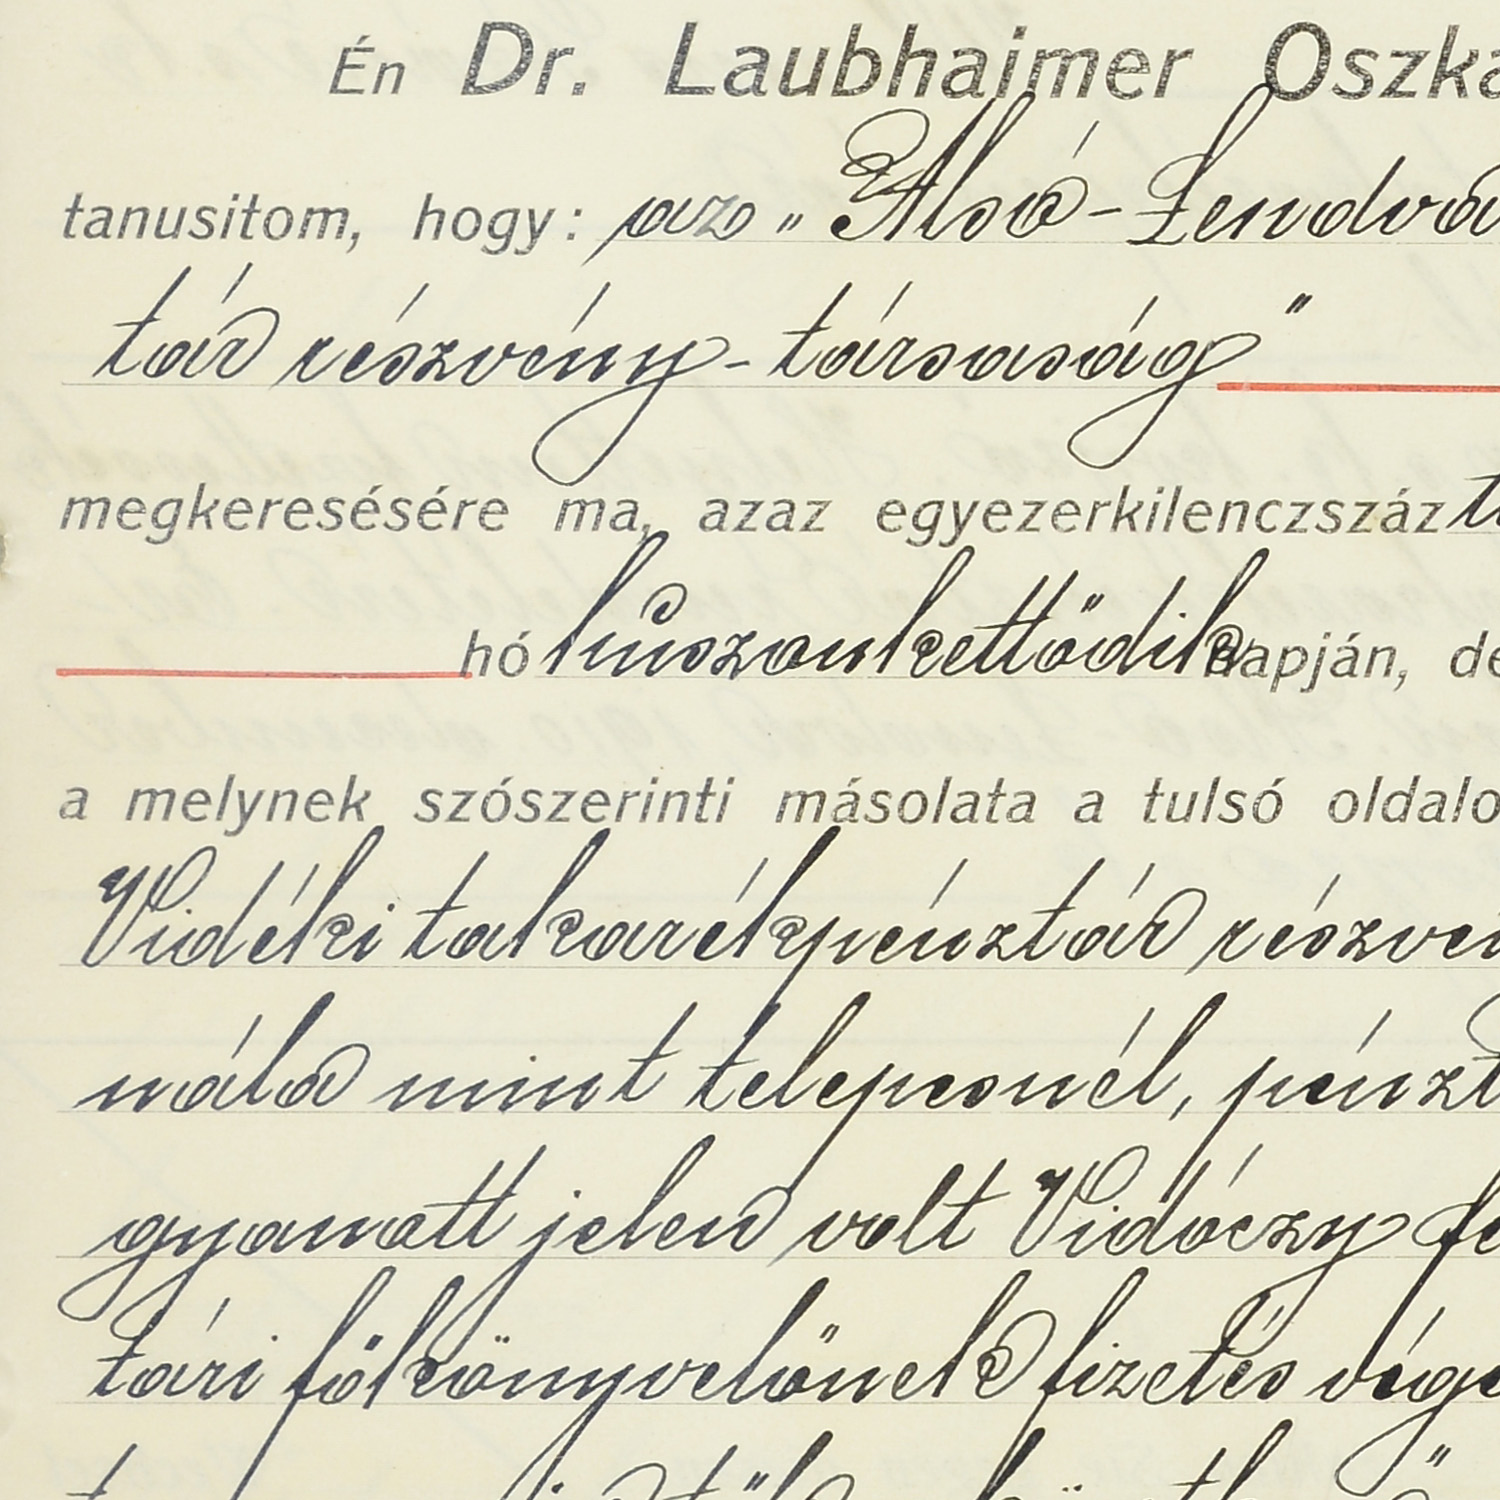 Én Dr. Laubhaimer Oszká
tanusitom, hogy: az „Alsó-Lendva
tár részvény-társaság"
megkeresésére ma, azaz egyezerkilenczszáz
hó huszonkettödik napján, de
a melynek szószerinti másolata a tulsó oldalo
Vidéki takarékpénztár részvén
nála mint telepesnél, pénzt
gyanatt jelen volt Vidóczy fe
tári fökönyvelönek fizetés vége